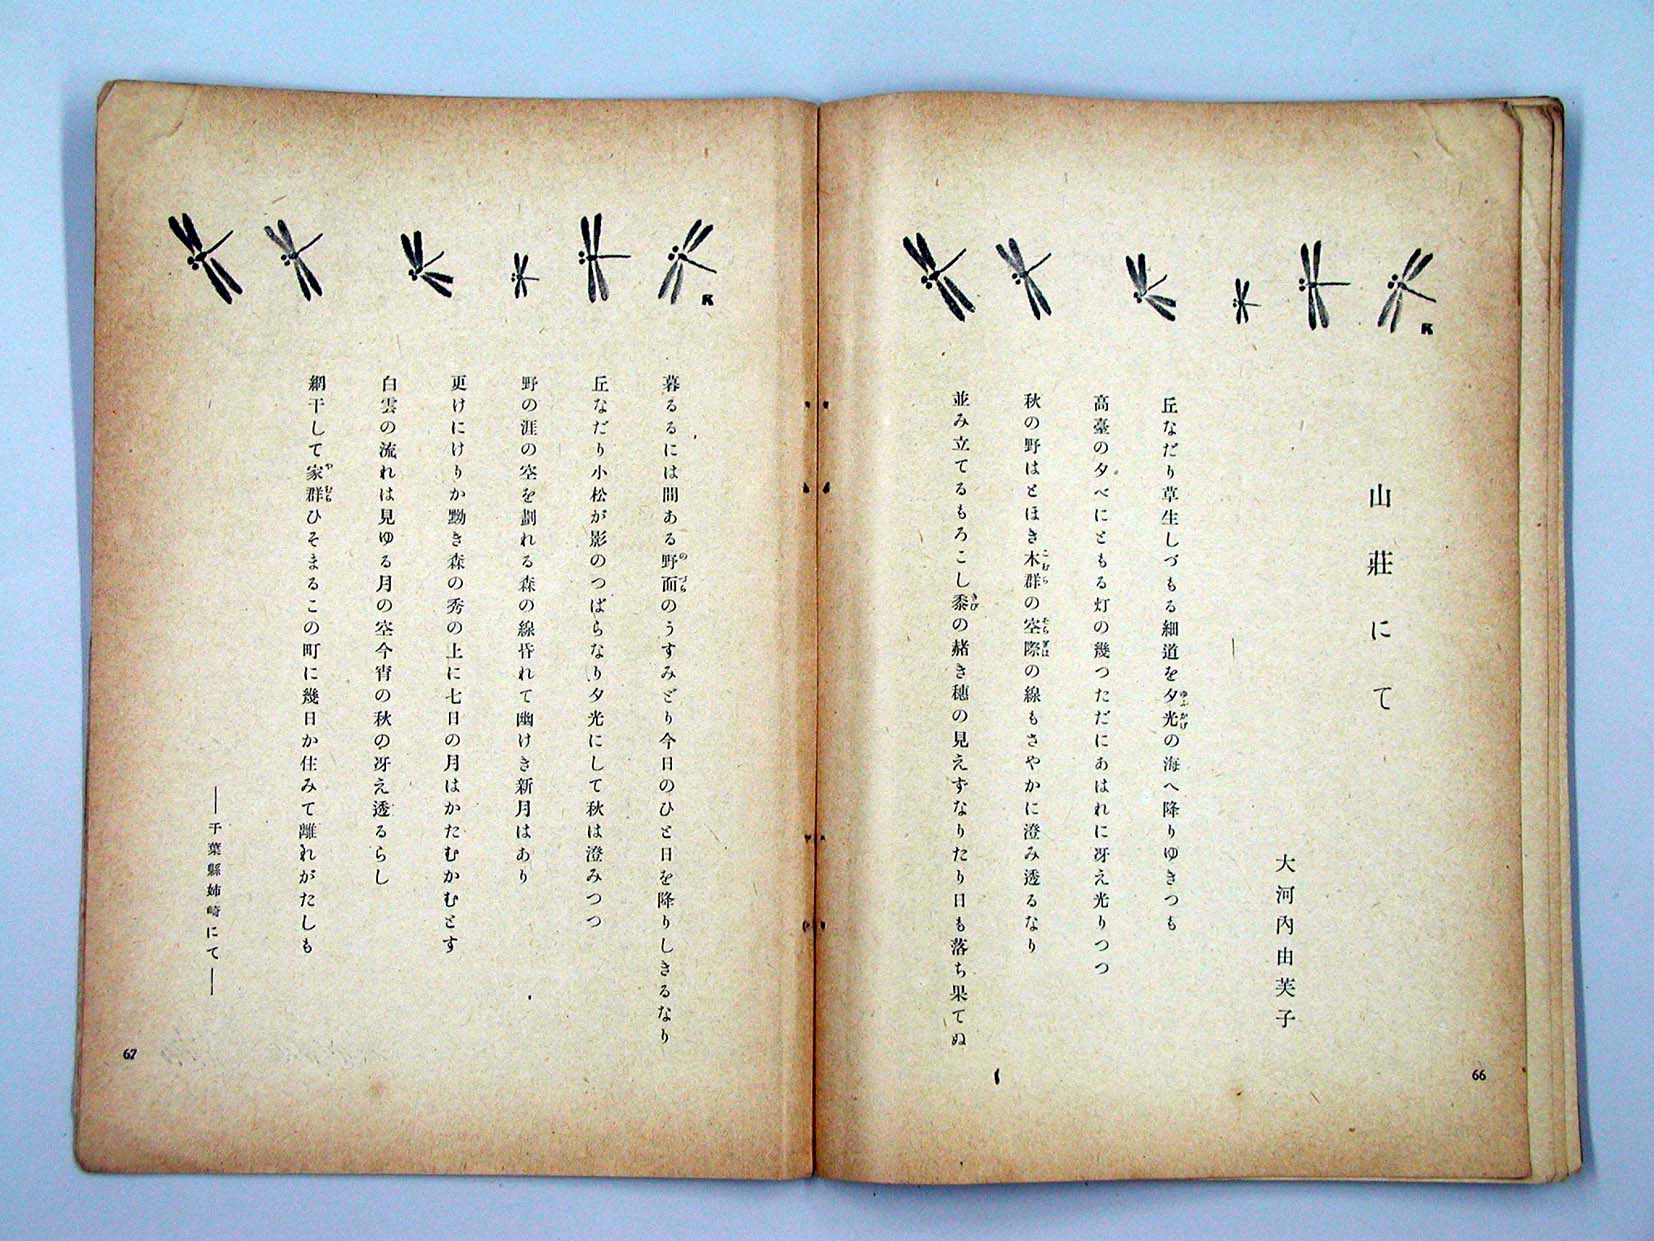 山莊にて
大河内由芙子
丘なだり草生しづもる細道を夕光の海へ降りゆきつも
ゆふかげ
高臺の夕べにともる灯の幾つただにあはれに冴え光りつつ
秋の野はとほき木群の空際の線もさやかに澄み透るなり
こむら
そらぎは
並み立てるもろこし黍の赭き穂の見えずなりたり日も落ち果てぬ
きび
66
K
暮るるには間ある野面のうすみどり今日のひと日を降りしきるなり
のづら
丘なだり小松が影のつばらなり夕光にして秋は澄みつつ
野の涯の空を劃れる森の線昏れて幽けき新月はあり
更けにけりか黝き森の秀の上に七日の月はかたむかむとす
白雲の流れは見ゆる月の空今宵の秋の冴え透るらし
網干して家群ひそまるこの町に幾日か住みて離れがたしも
やむら
――千葉縣姉崎にて――
67
K